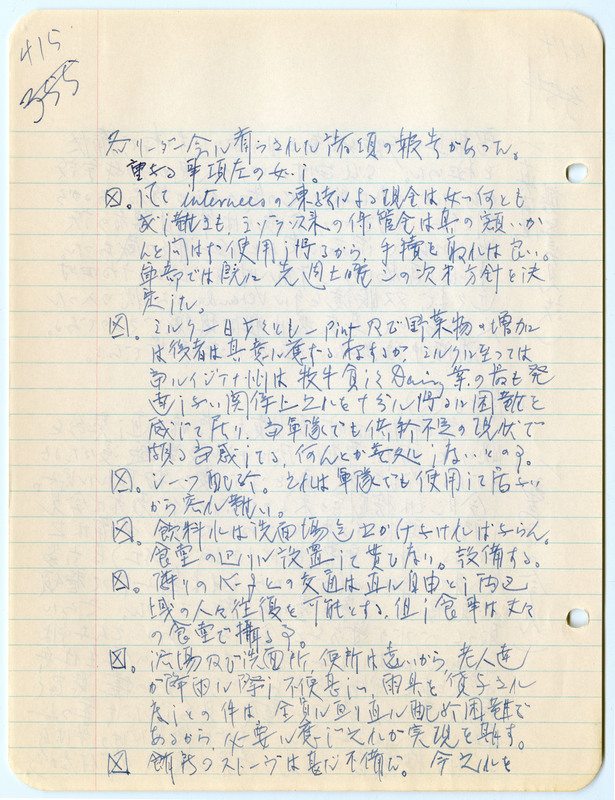 415
355
各リーダー会ニ齎らされた諸項の報告があった。
重なる事項左の如し。
☒。 internees の凍結による現金は如何とも
成し難きも、の保管金は其の額いか
んを問はず使用し得るから、手続を取れば良い。
軍部では既に先週土曜この次第方針を決
定した。
☒。ミルク一日少くとも一 pint 及び野菜物の増加
は後者は其意に応ずる様するが、ミルクに至っては
当ルイジアナ州は牧牛貧しく Dairy 業の尚も発
達しない関係上之れを十分に得るは困難と
感じて居り、当軍隊でも供給不足の現状で
頗る苦感してる、何んとか善処しないとの事。
☒。シーツ配給。それは軍隊でも使用して居ない
から容れ難い。
☒。飲料水は洗面場迄出かけなければならん。
食堂の辺りに設置して貰ひたい。設備する。
☒。隣りのキャンプとの交通は直に自由とし両区
域の人々往復を可能とする、但し食事は夫々
の食堂で摂る事。
☒。浴場及び洗面所、便所は遠いから、老人達
が降雨に際し不便甚しい、雨具を貸与され
度しとの件は、全員に亘り直に配給困難で
あるから、必要に応じ之れが実現を期す。
☒ 部屋のストーヴは甚だ不備だ。今之れを